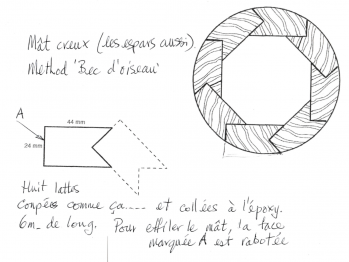 Mât creux (les espars aussi)
Method 'Bec d'oiseau'
A
44 mm
24 mm
Huit lattes
Coupées comme ça..... et collées à l'époxy.
6m. de long. Pour effiler le mât, la face
marquée A est rabotée